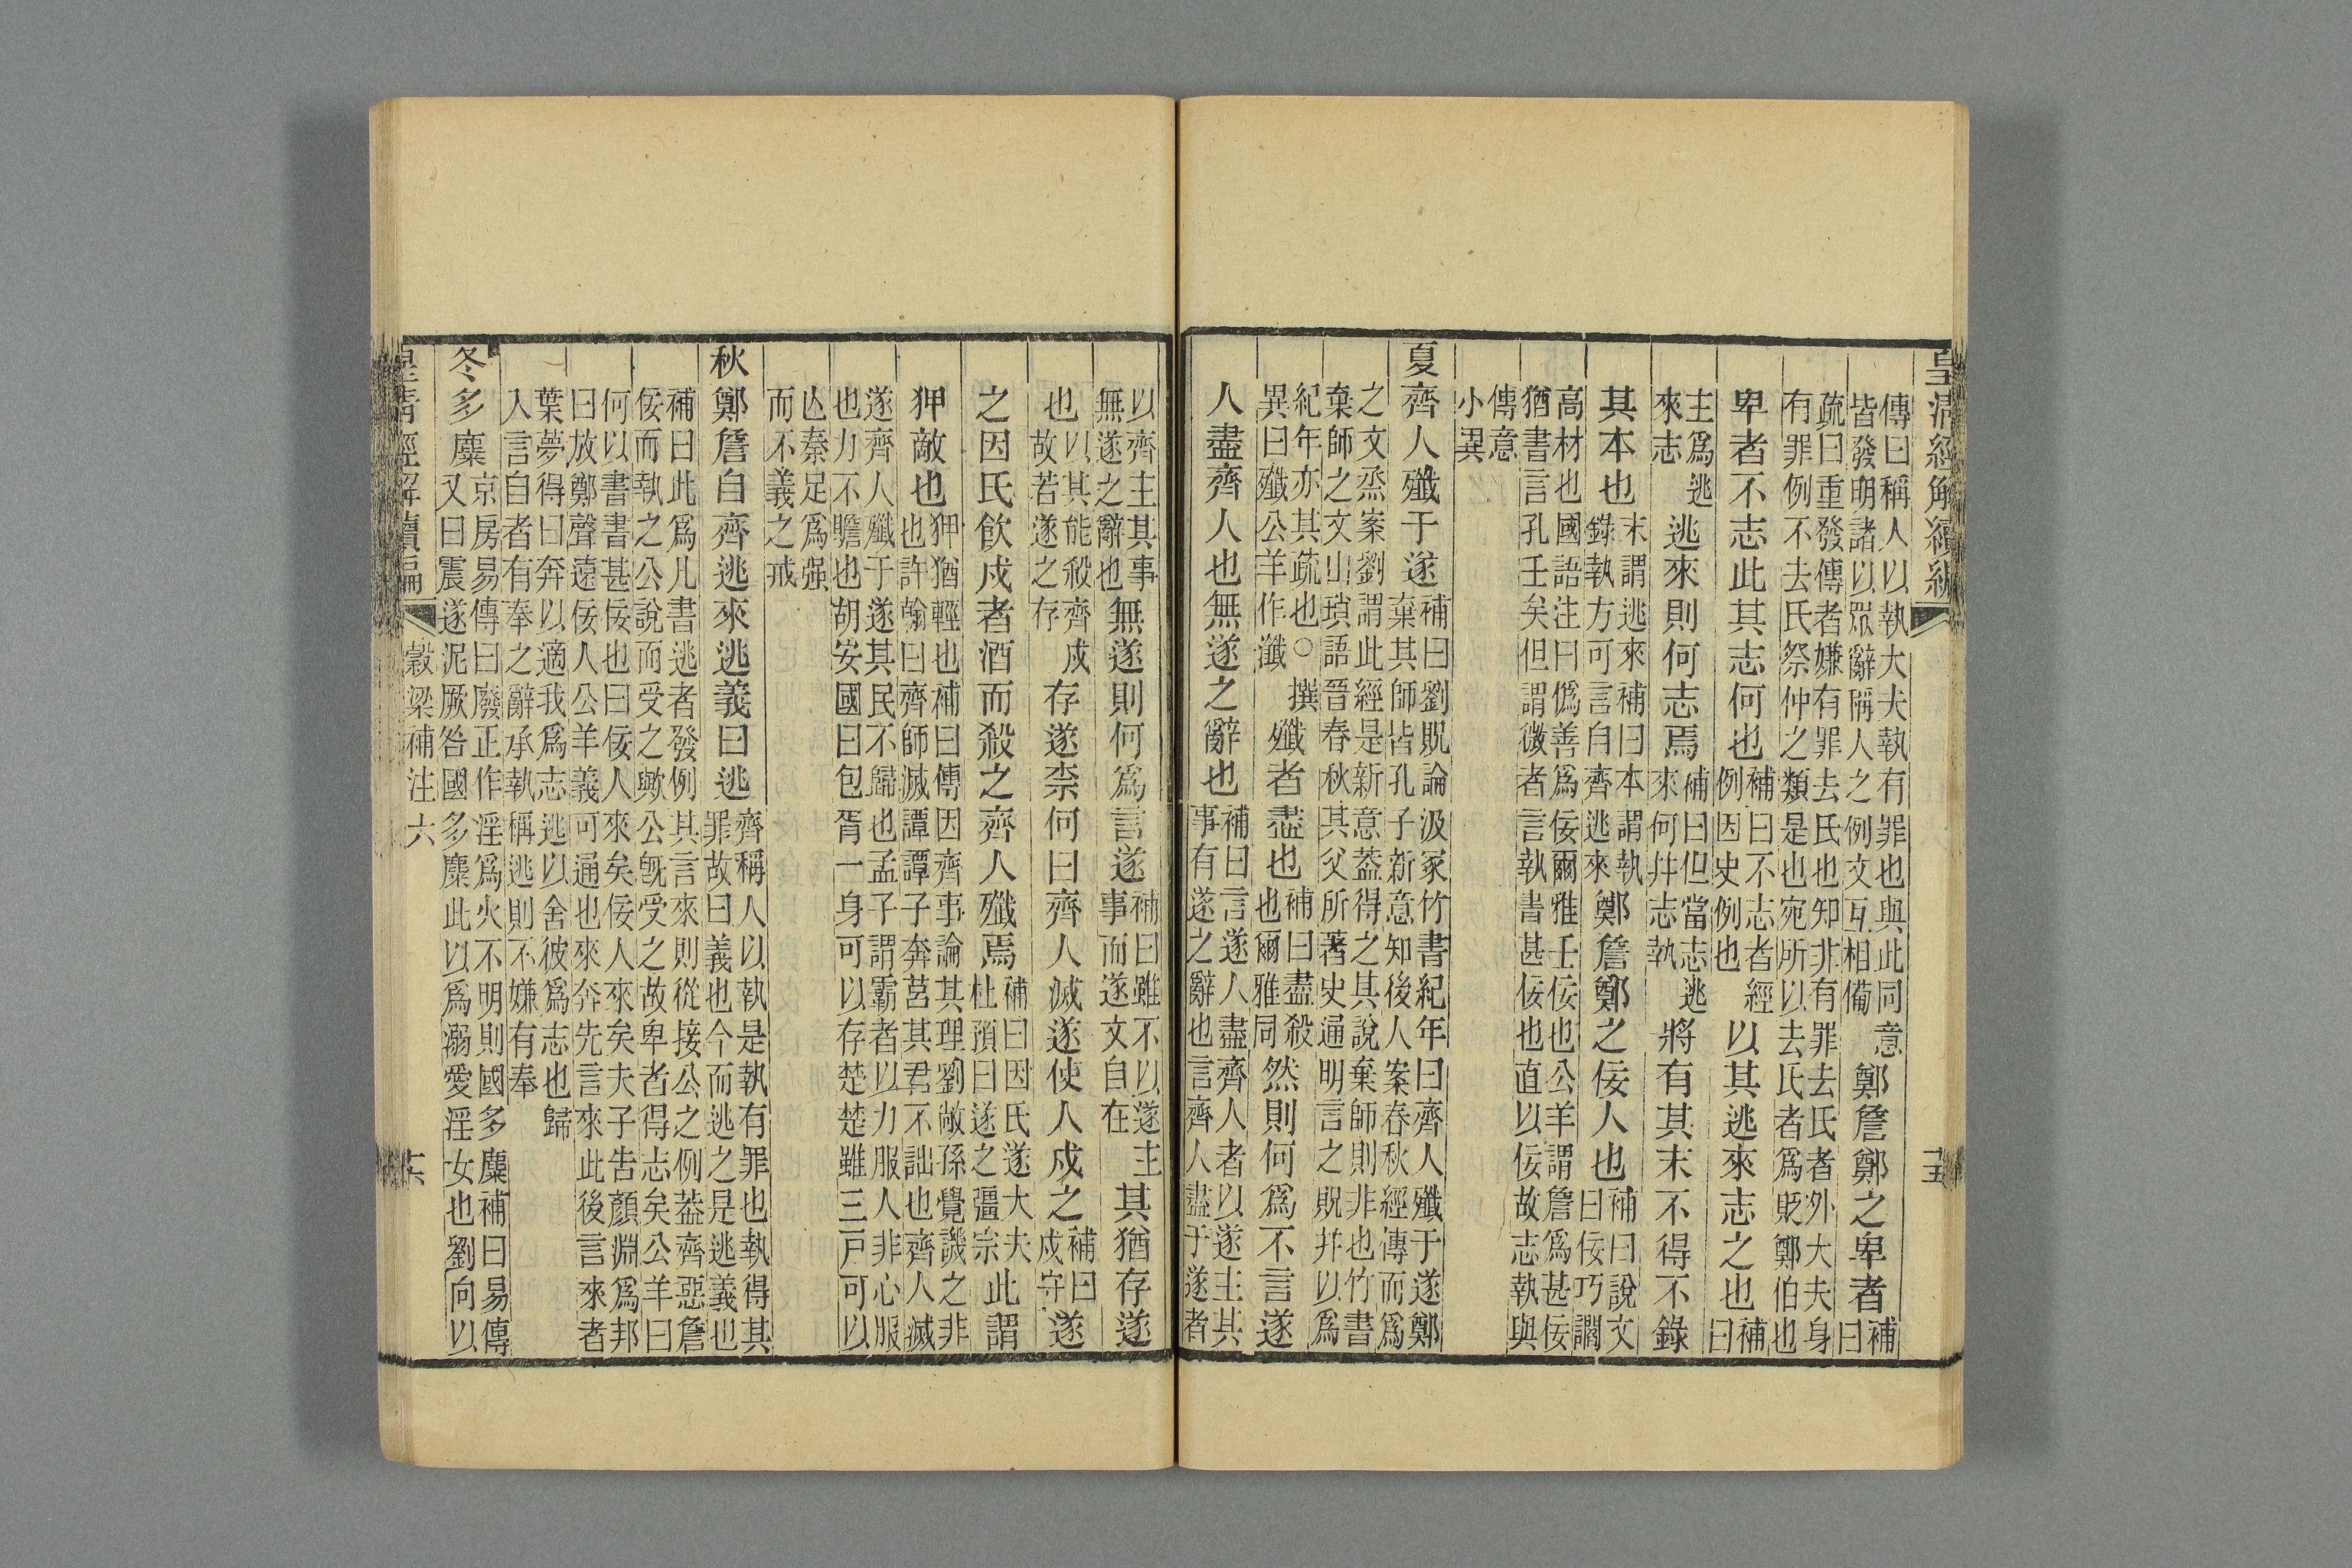 皇清經解續編 十五
傳曰稱人以執大夫執有罪也與此同意
皆發明諸以眾辭稱人之例文互相備
鄭詹鄭之卑者
補
曰
疏曰重發傳者嫌有罪去氏也知非有罪去氏者外大夫身
有罪例不去氏祭仲之類是也宛所以去氏者爲貶鄭伯也
卑者不志此其志何也
補曰不志者經
例因史例也
以其逃來志之也
補
曰
主爲逃
來志
逃來則何志焉
補曰但當志逃
來何幷志執
將有其末不得不錄
其本也
末謂逃來補曰本謂執
錄執方可言自齊逃來
鄭詹鄭之佞人也
補曰說文
曰佞巧讇
高材也國語注曰僞善爲佞爾雅壬佞也公羊謂詹爲甚佞
猶書言孔壬矣但謂微者言執書甚佞也直以佞故志執與
傳意
小異
夏齊人殲于遂
補曰劉貺論汲冢竹書紀年曰齊人殲于遂鄭
棄其師皆孔子新意知後人案春秋經傳而爲
之文烝案劉謂此經是新意葢得之其說棄師則非也竹書
棄師之文山瑣語晉春秋其父所著史通明言之貺幷以爲
紀年亦其疏也○撰
異曰殲公羊作瀸
殲者盡也
補曰盡殺
也爾雅同
然則何爲不言遂
人盡齊人也無遂之辭也
補曰言遂人盡齊人者以遂主其
事有遂之辭也言齊人盡于遂者
以齊主其事
無遂之辭也
無遂則何爲言遂
補曰雖不以遂主
事而遂文自在
其猶存遂
也
以其能殺齊戍
故若遂之存
存遂柰何曰齊人滅遂使人戍之
補曰
戍守
遂
之因氏飲戍者酒而殺之齊人殲焉
補曰因氏遂大夫
杜預曰遂之彊宗
此謂
狎敵也
狎猶輕也補曰傳因齊事論其理劉敞孫覺譏之非
也許翰曰齊師滅譚譚子奔莒其君不詘也齊人滅
遂齊人殲于遂其民不歸也孟子謂霸者以力服人非心服
也力不贍也胡安國曰包胥一身可以存楚楚雖三戸可以
亾秦足爲强
而不義之戒
秋鄭詹自齊逃來逃義曰逃
齊稱人以執是執有罪也執得其
罪故曰義也今而逃之是逃義也
補曰此爲凡書逃者發例其言來則從接公之例葢齊惡詹
佞而執之公說而受之歟公旣受之故卑者得志矣公羊曰
何以書書甚佞也曰佞人來矣佞人來矣夫子告顏淵爲邦
曰放鄭聲遠佞人公羊義可通也來奔先言來此後言來者
葉夢得曰奔以適我爲志逃以舍彼爲志也歸
入言自者有奉之辭承執稱逃則不嫌有奉
冬多麋
京房易傳曰廢正作淫爲火不明則國多麋補曰易傳
又曰震遂泥厥咎國多麋此以爲溺愛淫女也劉向以
皇清經解續編 穀梁補注六 十六